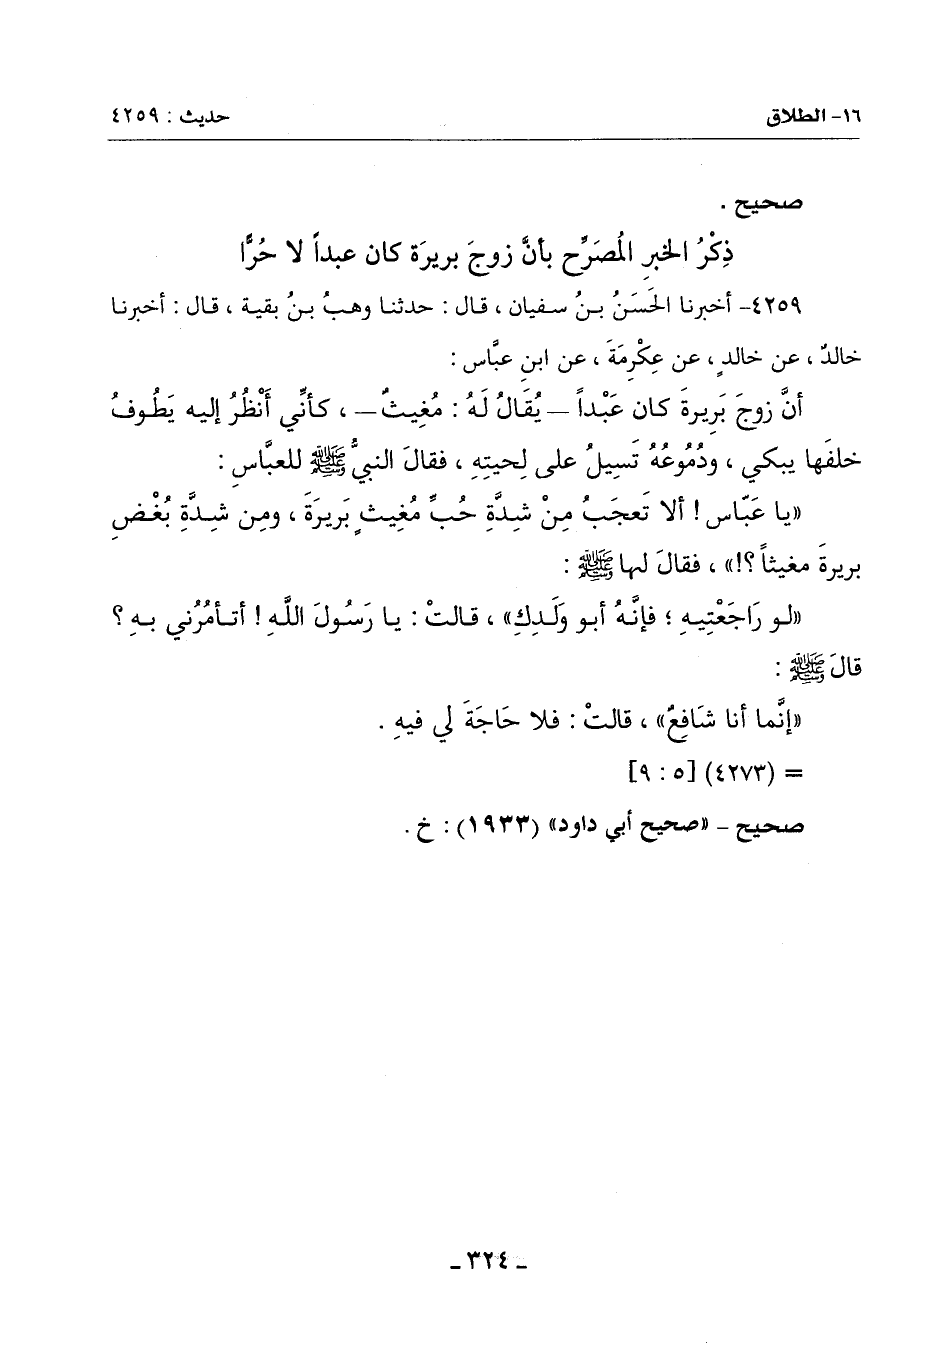 ١٦- الطلاق
حديث : ٤٢٥٩
صحيح .
ذِكْرُ الخبرِ المُصَرِّح بأنَّ زوجَ بريرَة كان عبداً لا حُرًّا
٤٢٥٩- أخبرنا الحَسَنُ بـنُ سـفيان ، قـال : حدثنـا وهبُ بـنُ بقيـة ، قـال : أخبرنـا
خالدٌ ، عن خالدٍ ، عن عِكْرِمَةَ ، عن ابنِ عبَّاس :
أنَّ زوجَ بَرِيرةَ كان عَبْداً —يُقَالُ لَهُ : مُغِيثٌ— ، كأنِّي أَنْظُرُ إليه يَطُوفُ
خلفَها يبكي ، ودُمُوعُهُ تَسِيلُ على لِحيتِهِ ، فقالَ النبيُّ ﷺ للعبَّاسِ :
«يا عَبّاس ! ألا تَعجَبُ مِنْ شِدَّةِ حُبِّ مُغِيثٍ بَرِيرَةَ ، ومِن شِدَّةِ بُغْضِ
بريرةَ مغيثاً ؟!» ، فقالَ لها ﷺ :
«لـو رَاجَعْتِيـهِ ؛ فإنَّـهُ أبـو وَلَـدِكِ» ، قـالتْ : يـا رَسُولَ اللَّـهِ ! أتـأمُرُني بـهِ ؟
قالَ ﷺ :
«إنَّما أنا شَافِعٌ» ، قالتْ : فلا حَاجَةَ لي فيهِ .
= (٤٢٧٣) [٥ : ٩]
صحيح - «صحيح أبي داود» (١٩٣٣) : خ .
- ٣٢٤ -